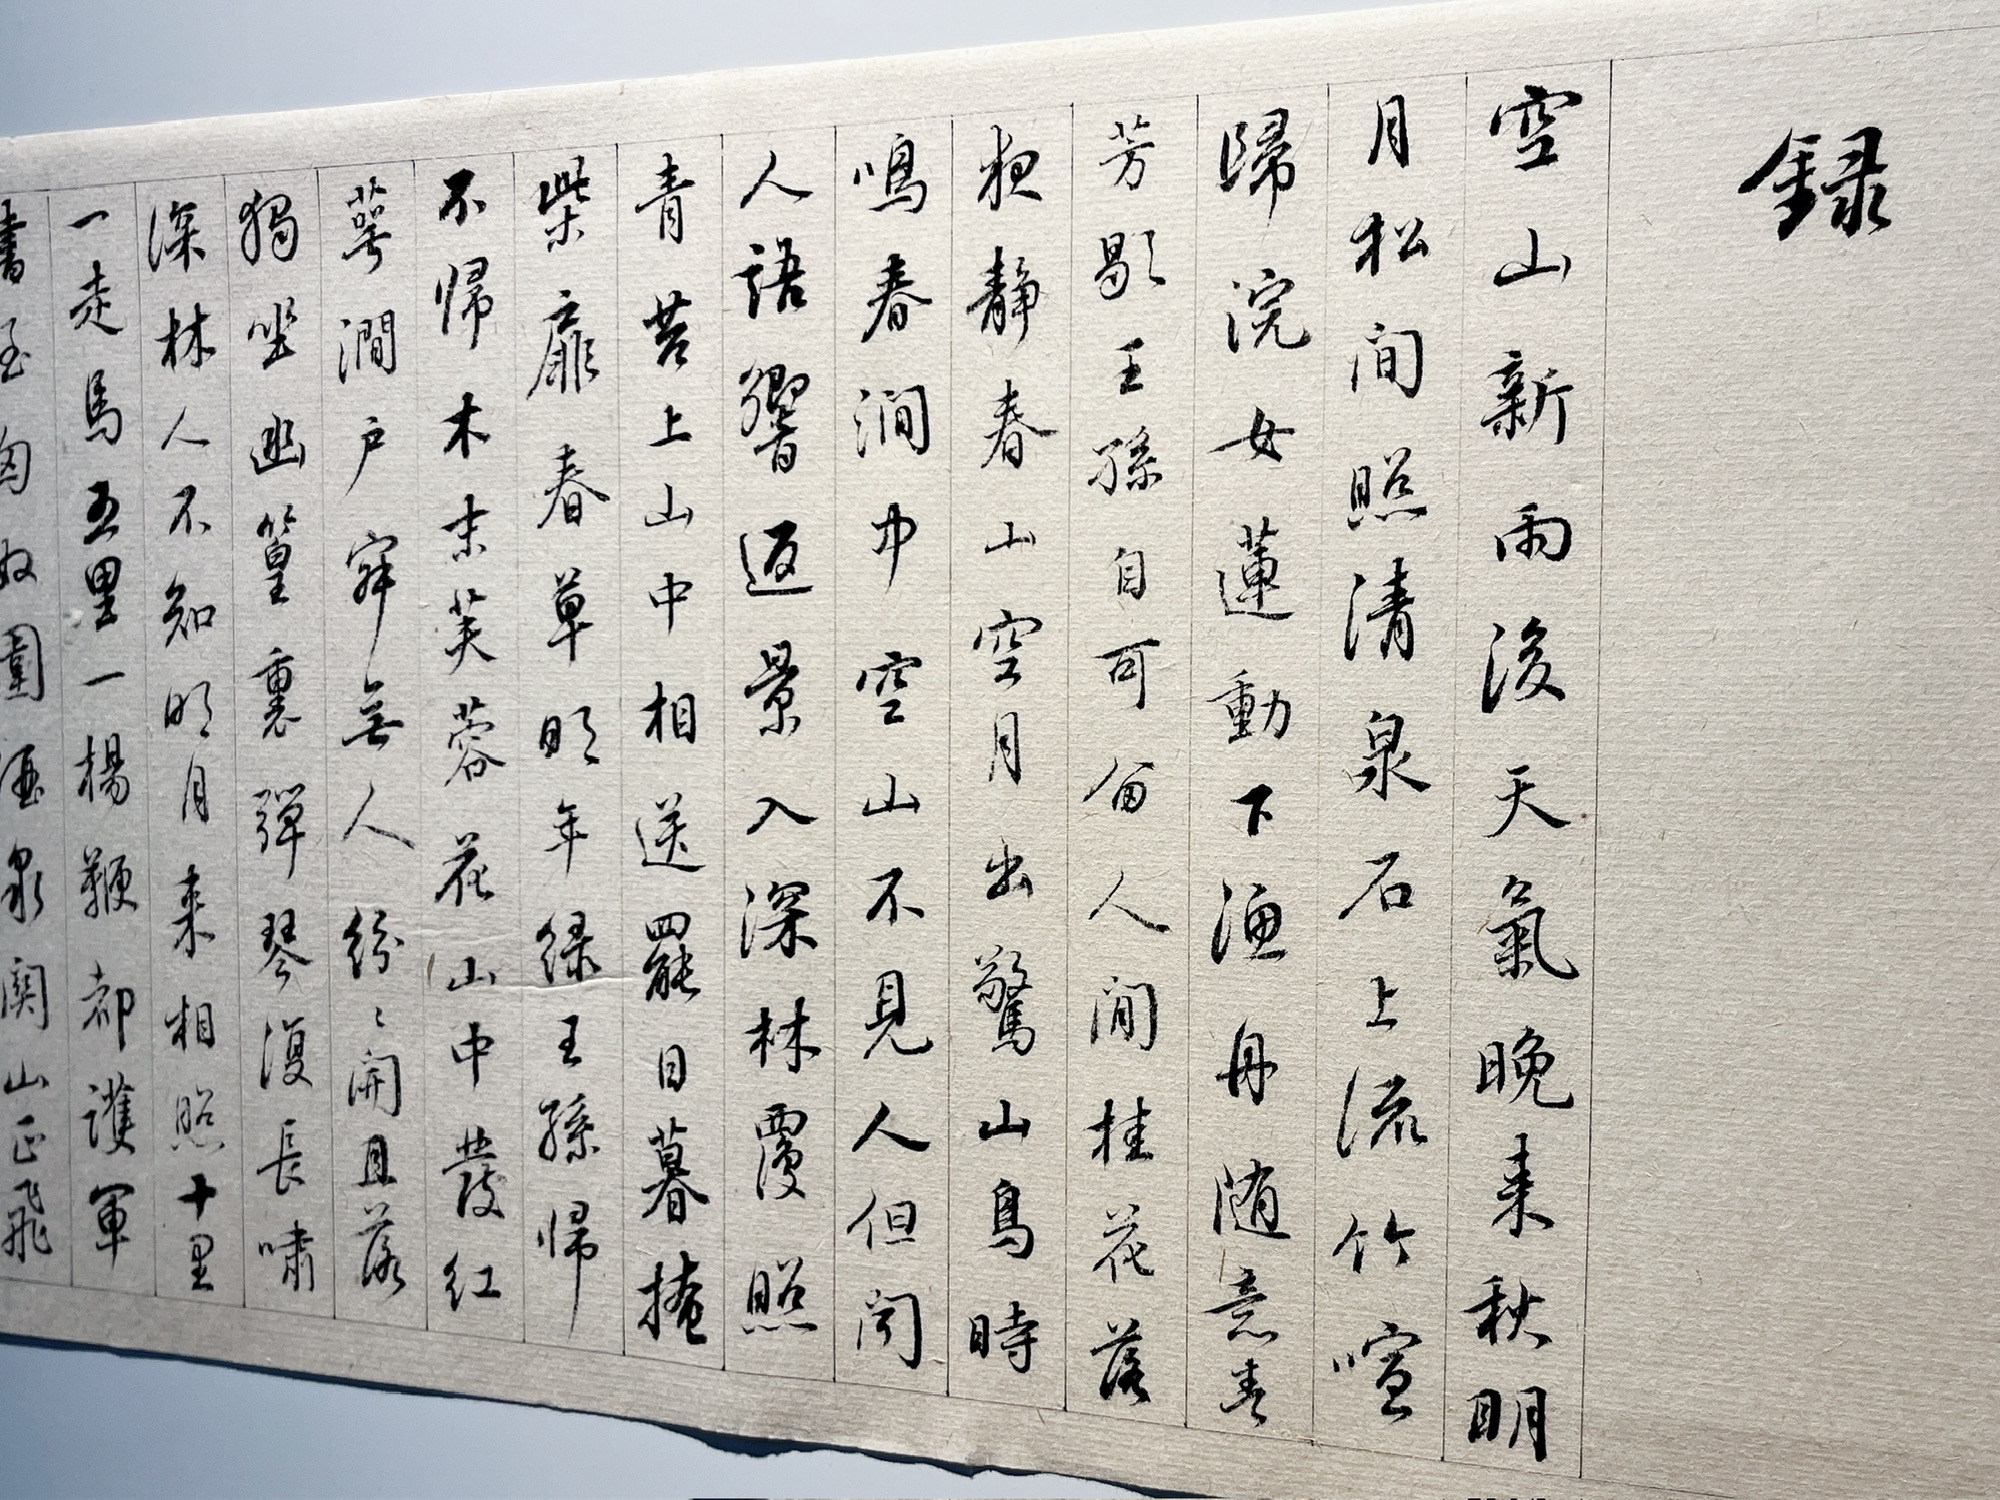 録
空山新雨後天氣晚来秋明
月松间照清泉石上流竹喧
歸浣女蓮動下漁舟随意春
芳歇王孫自可留人间桂花落
夜静春山空月出驚山鳥時
鳴春澗中空山不見人但闻
人語響返景入深林覆照
青苔上山中相送罷日暮掩
柴扉春草明年绿王孫帰
不帰木末芙蓉花山中發红
萼澗户寂無人纷〻開且落
獨坐幽篁裏彈琴復長嘯
深林人不知明月来相照十里
一走馬五里一楊鞭都護軍
書至匈奴圍酒泉関山正飛